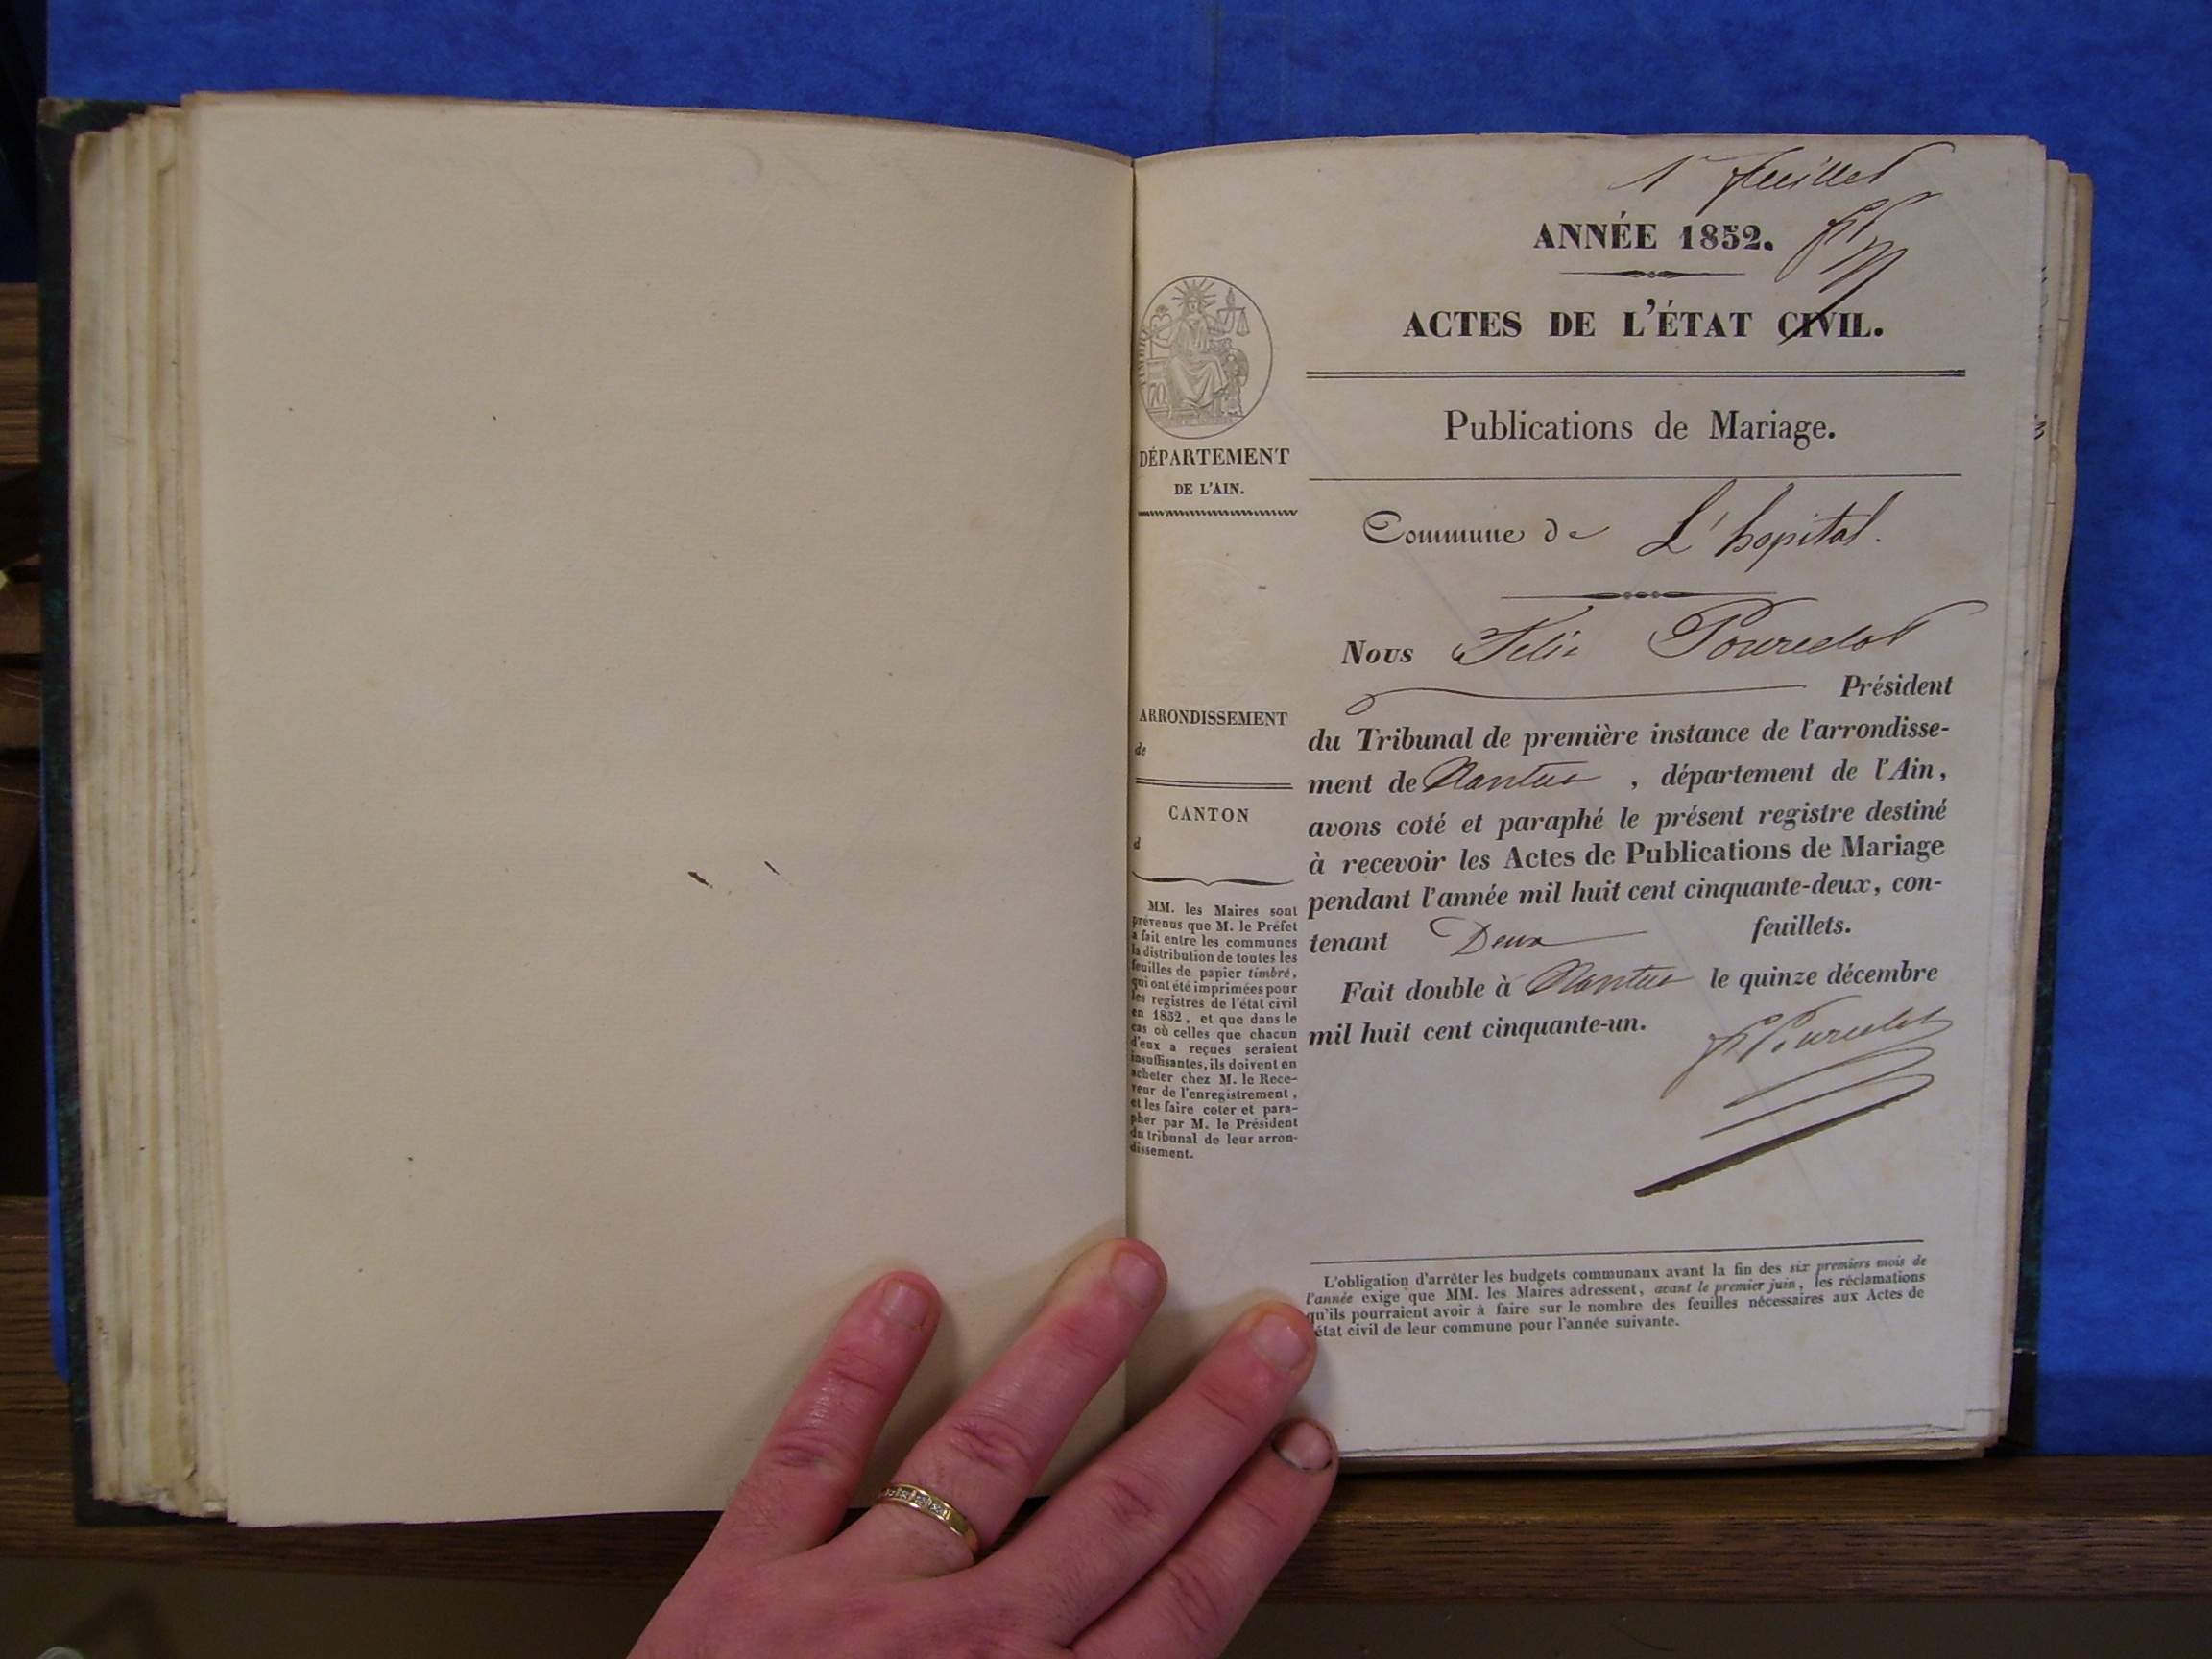 1r feuillet
ANNÉE 1852.
ACTES DE L'ÉTAT CIVIL.
Publications de Mariage.
Commune de L'hopital.
Nous Félix Pourcelot
Président
du Tribunal de première instance de l'arrondisse-
ment de Nantua, département de l'Ain,
avons coté et paraphé le présent registre destiné
à recevoir les Actes de Publications de Mariage
pendant l'année mil huit cent cinquante-deux, con-
tenant Deux feuillets.
Fait double à Nantua le quinze décembre
mil huit cent cinquante-un.
L'obligation d'arrêter les budgets communaux avant la fin des six premiers mois de
l'année exige que MM. les Maires adressent, avant le premier juin, les réclamations
qu'ils pourraient avoir à faire sur le nombre des feuilles nécessaires aux Actes de
état civil de leur commune pour l'année suivante.
TIMBRE
70
DÉPARTEMENT
DE L'AIN.
ARRONDISSEMENT
de
CANTON
d
MM. les Maires sont
prévenus que M. le Préfet
a fait entre les communes
la distribution de toutes les
feuilles de papier timbré,
qui ont été imprimées pour
les registres de l'état civil
en 1852, et que dans le
cas où celles que chacun
d'eux a reçues seraient
insuffisantes, ils doivent en
acheter chez M. le Rece-
veur de l'enregistrement,
et les faire coter et para-
pher par M. le Président
du tribunal de leur arron-
dissement.